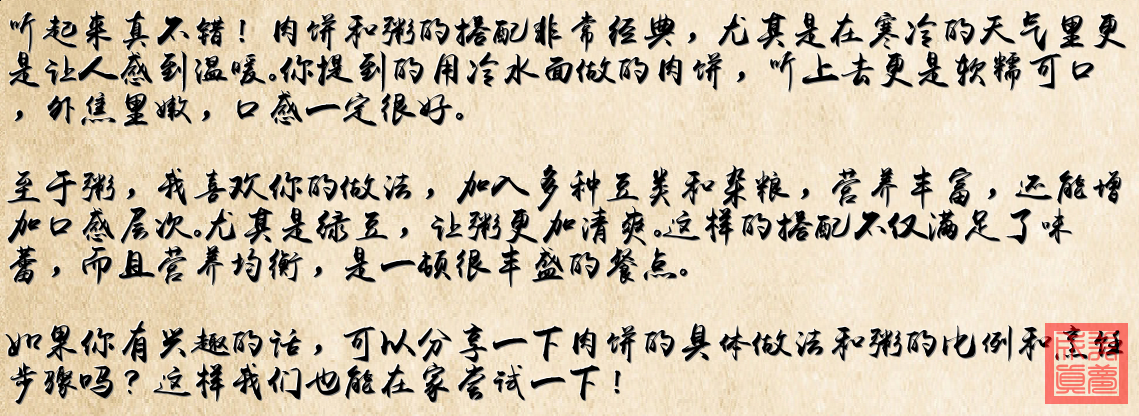 听起来真不错！肉饼和粥的搭配非常经典，尤其是在寒冷的天气里更
是让人感到温暖。你提到的用冷水面做的肉饼，听上去更是软糯可口
，外焦里嫩，口感一定很好。
至于粥，我喜欢你的做法，加入多种豆类和杂粮，营养丰富，还能增
加口感层次。尤其是绿豆，让粥更加清爽。这样的搭配不仅满足了味
蕾，而且营养均衡，是一顿很丰盛的餐点。
如果你有兴趣的话，可以分享一下肉饼的具体做法和粥的比例和烹饪
步骤吗？这样我们也能在家尝试一下！